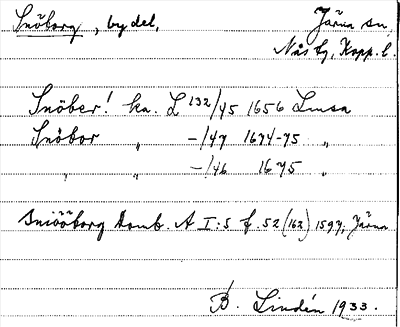 Snöborg, by del.
Järna sn,
Nås tg, Kopp. l.
Snöber! ka. L 132/45 1656 Lmsa
Snöbor " -/47 1674-75 "
" " -/46 1675 "
Sniööborg Domb. A I:5 f. 52 (162) 1597, Järna
B. Lindén 1933.